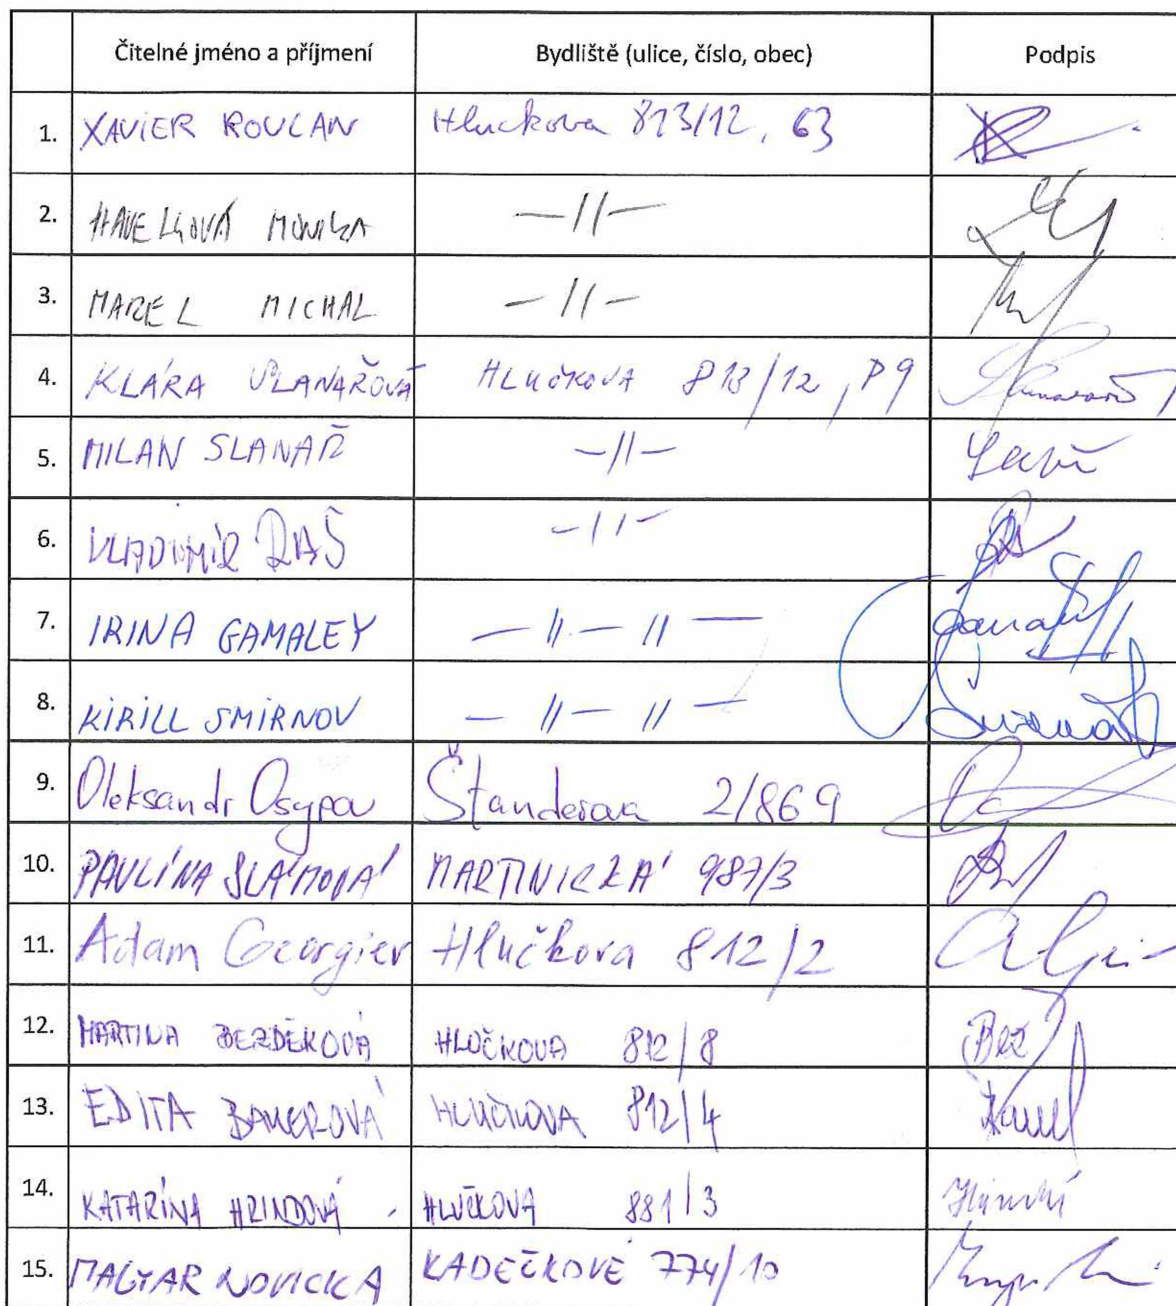 Čitelné jméno a příjmení Bydliště (ulice, číslo, obec) Podpis
1. XAVIER ROULAN Hluckova 813/12, 63
2. HAVELKOVÁ MONIKA —//—
3. MAREL MICHAL —//—
4. KLÁRA SLANAŘOVÁ HLUČKOVA 813/12, P9
5. MILAN SLANAŘ —//—
6. VLADIMÍR RAŠ —//—
7. IRINA GAMALEY —//—//—
8. KIRILL SMIRNOV —//—//—
9. Oleksandr Osypov Štanderova 2/869
10. PAVLÍNA SLÁMOVÁ MARTINICKÁ 987/3
11. Adam Georgiev Hlučkova 812/2
12. MARTINA BEZDĚKOVÁ HLUČKOVA 812/8
13. EDITA BAUEROVÁ HLUČKOVA 812/4
14. KATARÍNA HRINDOVÁ HLUČKOVA 881/3
15. MAGYAR NOVICKA KADEČKOVÉ 774/10